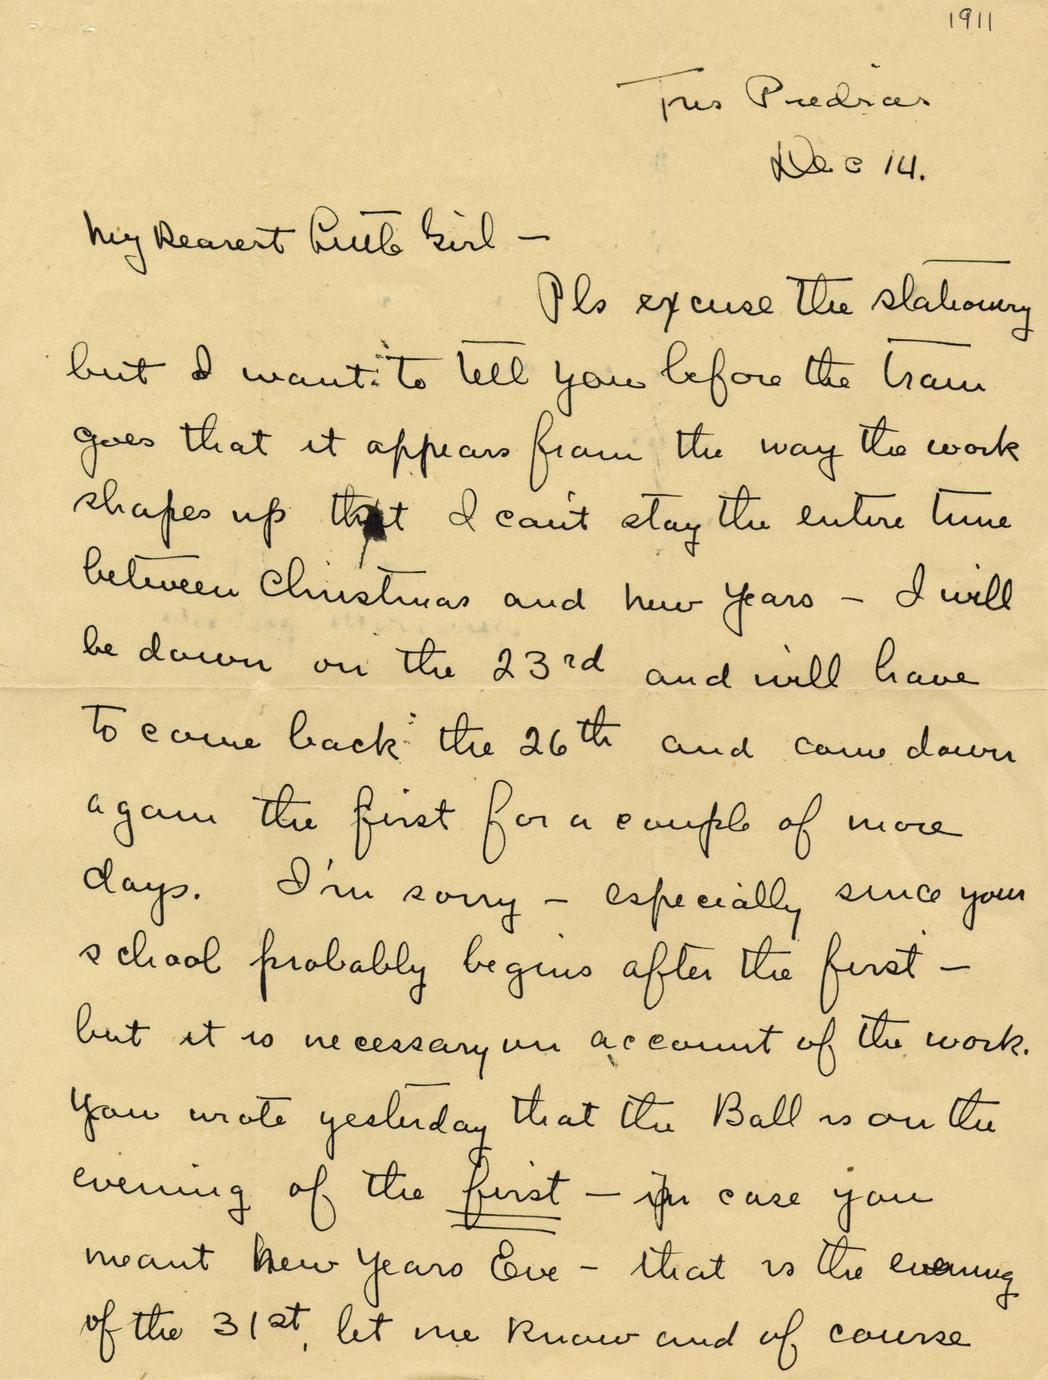 1911
Tres Piedras
Dec 14.
My Dearest Little Girl —
Pls excuse the stationery
but I want to tell you before the train
goes that it appears from the way the work
shapes up that I can't stay the entire time
between Christmas and New Years — I will
be down on the 23rd and will have
to come back the 26th and come down
again the first for a couple of more
days. I'm sorry — especially since your
school probably begins after the first —
but it is necessary on account of the work.
You wrote yesterday that the Ball is on the
evening of the first — in case you
meant New Years Eve — that is the evening
of the 31st, let me know and of course